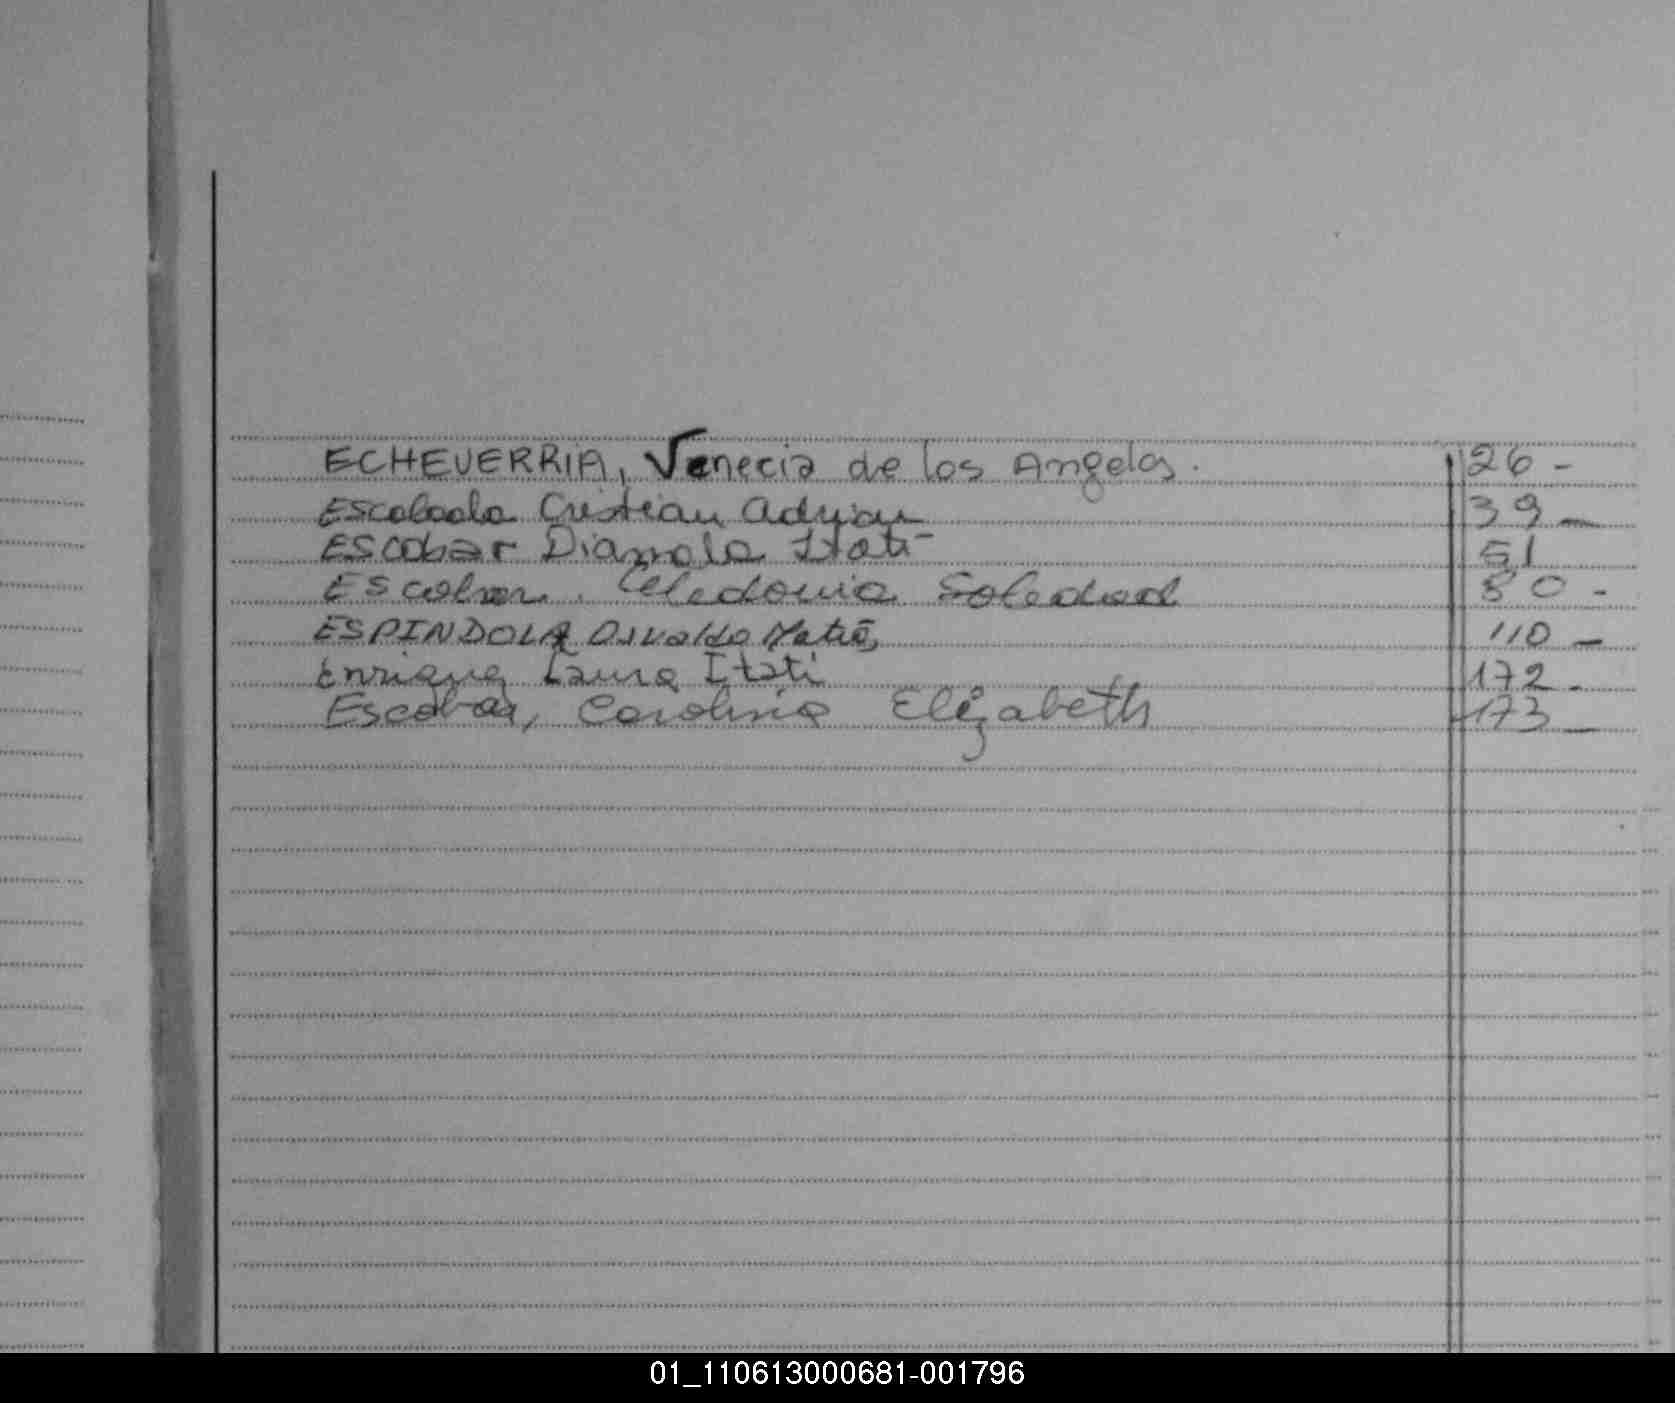 ECHEVERRIA, Venecia de los Angeles. 26 -
Escobado Cristian Adrian 39 -
Escobar Diamela Itati 51
Escobar. Celedonia Soledad 80 -
ESPINDOLA Osvaldo Matias 110 -
Enrique Laura Itati 172 -
Escobar, Carolina Elizabeth 173 -
01_110613000681-001796